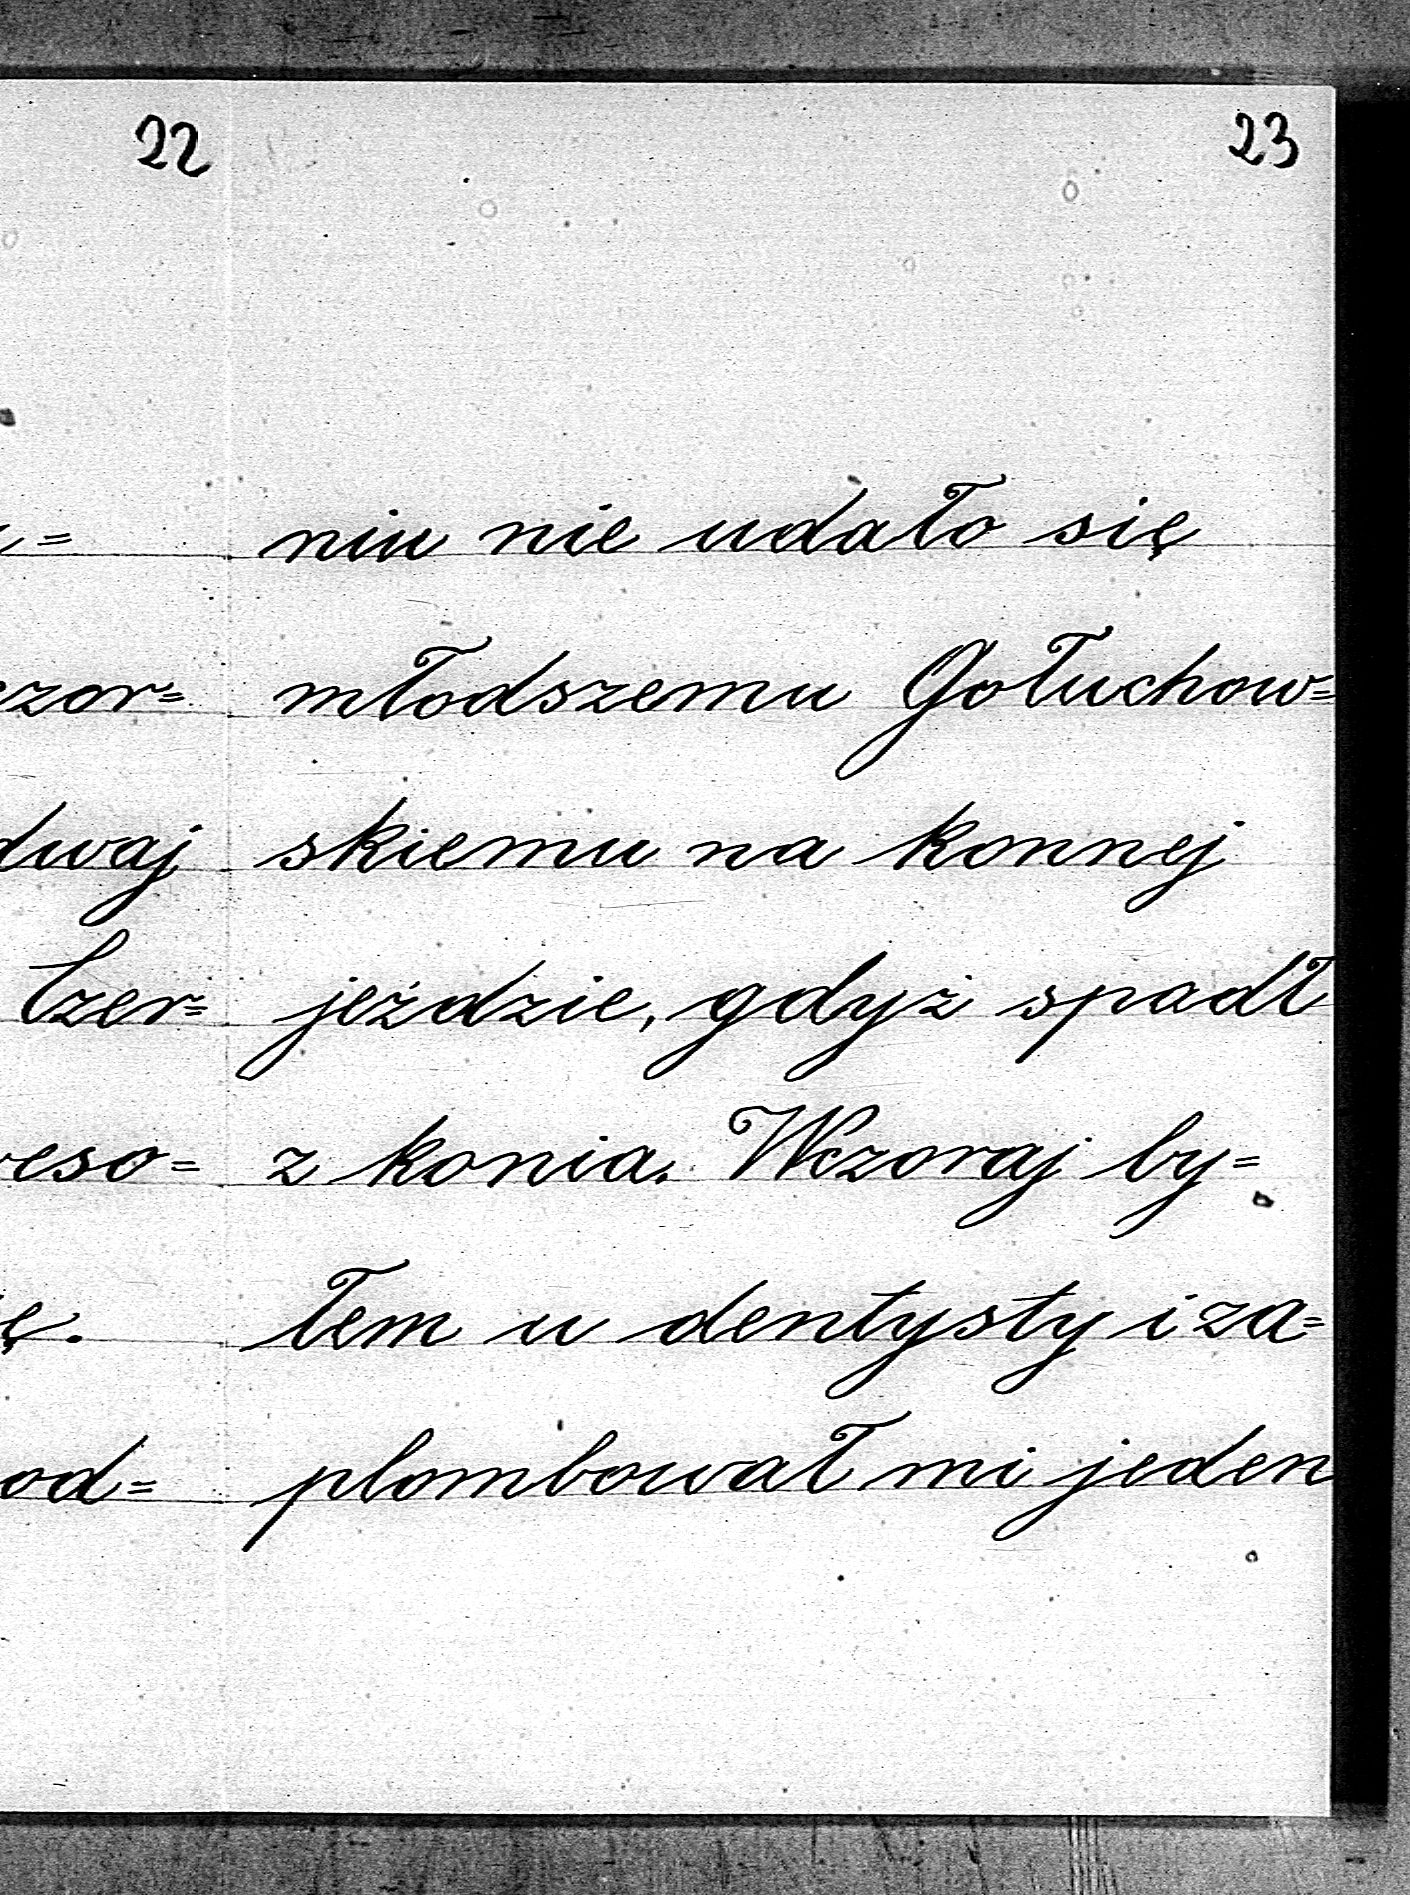 22
zor=
dwaj
Czer=
eso=
ę.
od=
23
niu nie udało się
młodszemu Gołuchow=
skiemu na konnej
jeździe, gdyż spadł
z konia. Wczoraj by=
łem u dentysty i za=
plombował mi jeden